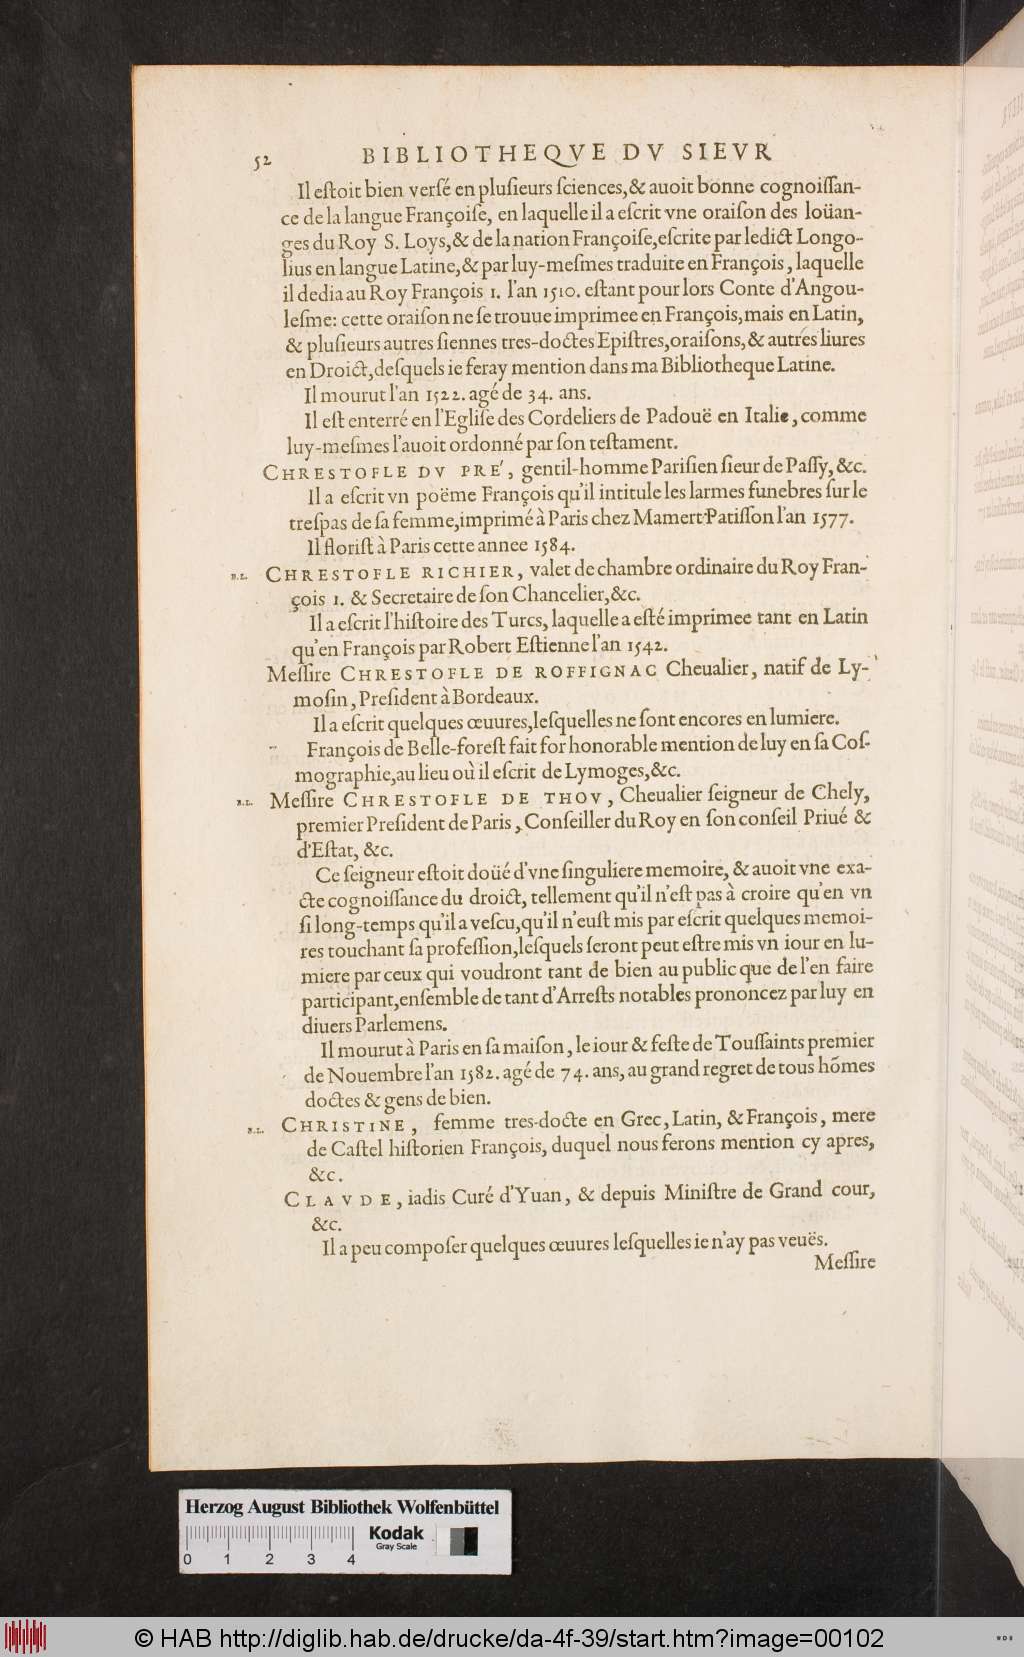 52 BIBLIOTHEQVE DV SIEVR
Il eſtoit bien verſé en pluſieurs ſciences, & auoit bonne cognoiſſan-
ce de la langue Françoiſe, en laquelle il a eſcrit vne oraiſon des loüan-
ges du Roy S. Loys, & de la nation Françoiſe, eſcrite par ledict Longo-
lius en langue Latine, & par luy-meſmes traduite en François, laquelle
il dedia au Roy François 1. l'an 1510. eſtant pour lors Conte d'Angou-
leſme: cette oraiſon ne ſe trouue imprimee en François, mais en Latin,
& pluſieurs autres ſiennes tres-doctes Epiſtres, oraiſons, & autres liures
en Droict, deſquels ie feray mention dans ma Bibliotheque Latine.
Il mourut l'an 1522. agé de 34. ans.
Il eſt enterré en l'Egliſe des Cordeliers de Padouë en Italie, comme
luy-meſmes l'auoit ordonné par ſon teſtament.
CHRESTOFLE DV PRÉ, gentil-homme Pariſien ſieur de Paſſy, &c.
Il a eſcrit vn poëme François qu'il intitule les larmes funebres ſur le
treſpas de ſa femme, imprimé à Paris chez Mamert Patiſſon l'an 1577.
Il floriſt à Paris cette annee 1584.
B.L. CHRESTOFLE RICHIER, valet de chambre ordinaire du Roy Fran-
çois 1. & Secretaire de ſon Chancelier, &c.
Il a eſcrit l'hiſtoire des Turcs, laquelle a eſté imprimee tant en Latin
qu'en François par Robert Eſtienne l'an 1542.
Meſſire CHRESTOFLE DE ROFFIGNAC Cheualier, natif de Ly-
moſin, Preſident à Bordeaux.
Il a eſcrit quelques œuures, leſquelles ne ſont encores en lumiere.
François de Belle-foreſt fait fort honorable mention de luy en ſa Coſ-
mographie, au lieu où il eſcrit de Lymoges, &c.
B.L. Meſſire CHRESTOFLE DE THOV, Cheualier ſeigneur de Chely,
premier Preſident de Paris, Conſeiller du Roy en ſon conſeil Priué &
d'Eſtat, &c.
Ce ſeigneur eſtoit doüé d'vne ſinguliere memoire, & auoit vne exa-
cte cognoiſſance du droict, tellement qu'il n'eſt pas à croire qu'en vn
ſi long-temps qu'il a veſcu, qu'il n'euſt mis par eſcrit quelques memoi-
res touchant ſa profeſſion, leſquels ſeront peut eſtre mis vn iour en lu-
miere par ceux qui voudront tant de bien au public que de l'en faire
participant, enſemble de tant d'Arreſts notables prononcez par luy en
diuers Parlemens.
Il mourut à Paris en ſa maiſon, le iour & feſte de Touſſaints premier
de Nouembre l'an 1582. agé de 74. ans, au grand regret de tous hõmes
doctes & gens de bien.
B.L. CHRISTINE, femme tres-docte en Grec, Latin, & François, mere
de Caſtel hiſtorien François, duquel nous ferons mention cy apres,
&c.
CLAVDE, iadis Curé d'Yuan, & depuis Miniſtre de Grand cour,
&c.
Il a peu compoſer quelques œuures leſquelles ie n'ay pas veuës.
Meſſire
Herzog August Bibliothek Wolfenbüttel
0 1 2 3 4
Kodak
Gray Scale
© HAB http://diglib.hab.de/drucke/da-4f-39/start.htm?image=00102